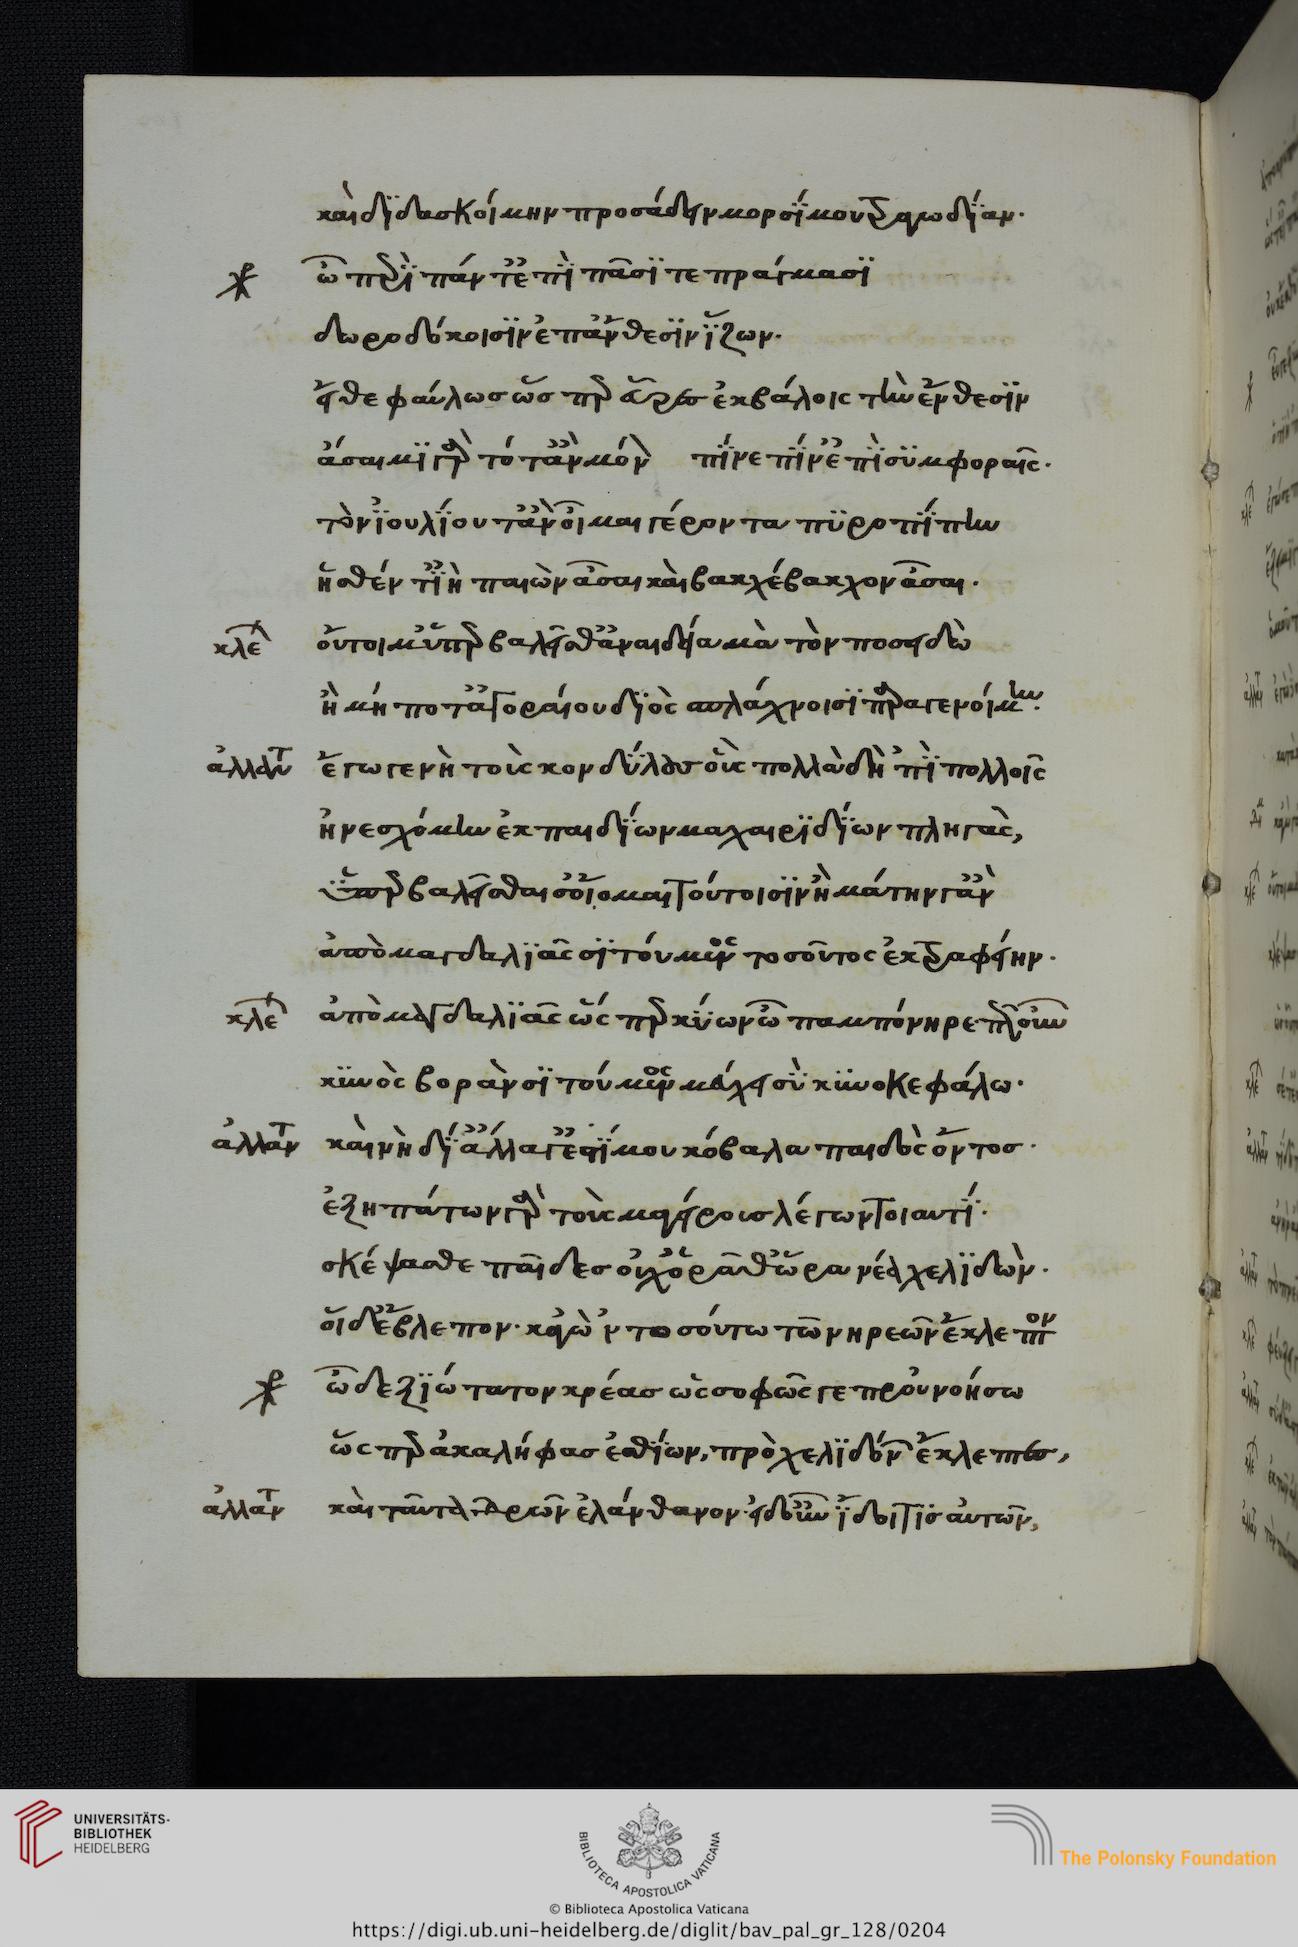 καὶ διδασκοίμην προσάδειν μορσίμου τραγωδίαν.
χο ὦ περὶ πάντ' ἐπὶ πᾶσί τε πράγμασι
δωροδόκοισιν ἐπ' ἄνθεσιν ἵζων.
εἴθε φαύλως ὥσπερ εὗρες ἐκβάλοις τὴν ἔνθεσιν
ἄσαιμι γὰρ τότ' ἂν μόνον πῖνε πῖν' ἐπὶ συμφοραῖς.
τὸν ἰουλίου τ' ἂν οἶμαι γέροντα πυροπίπην
ἡσθέντ' ἰὴ παιὼν ἆσαι καὶ βακχέβακχον ἆσαι.
κλε οὔτοι μ' ὑπερβαλεῖσθ' ἀναιδεία μὰ τὸν ποσειδῶ
ἢ μή ποτ' ἀγοραίου διὸς σπλάχνοισι παραγενοίμην.
ἀλλαν ἔγωγε νὴ τοὺς κονδύλους οὓς πολλὰ δὴ 'πὶ πολλοῖς
ἠνεσχόμην ἐκ παιδίων μαχαιρίδίων πληγὰς,
ὑπερβαλεῖσθαι σ' οἴομαι τούτοισιν ἢ μάτην γ' ἂν
ἀπομαγδαλιὰς σιτούμενος τοσοῦτος ἐκτραφείην.
κλε ἀπομαγδαλιὰς ὥσπερ κύων ὦ παμπόνηρε πῶς οὖν
κυνὸς βορὰν σιτούμενος μάχει σὺ κυνοκεφάλω.
ἀλλαν καὶ νὴ δί' ἄλλα γ' ἐστί μου κόβαλα παιδὸς ὄντος.
ἐξηπάτων γὰρ τοὺς μαγείρους λέγων τοιαυτί.
σκέψασθε παῖδες οὐχ ὁρᾶθ' ὥρα νέα χελιδών.
οἱ δ' ἔβλεπον. κἀγὼ 'ν τοσούτω τῶν κρεῶν ἔκλεπτον
χο ὦ δεξιώτατον κρέας ὡς σοφῶς γε προὐνοήσω
ὥσπερ ἀκαλήφας ἐσθίων, πρὸ χελιδόνων ἔκλεπτες,
ἀλλαν καὶ ταῦτα δρῶν ἐλάνθανον. εἰ δ' οὖν ἴδοι τις αὐτῶν,
UNIVERSITÄTS-
BIBLIOTHEK
HEIDELBERG
BIBLIOTECA APOSTOLICA VATICANA
The Polonsky Foundation
© Biblioteca Apostolica Vaticana
https://digi.ub.uni-heidelberg.de/diglit/bav_pal_gr_128/0204